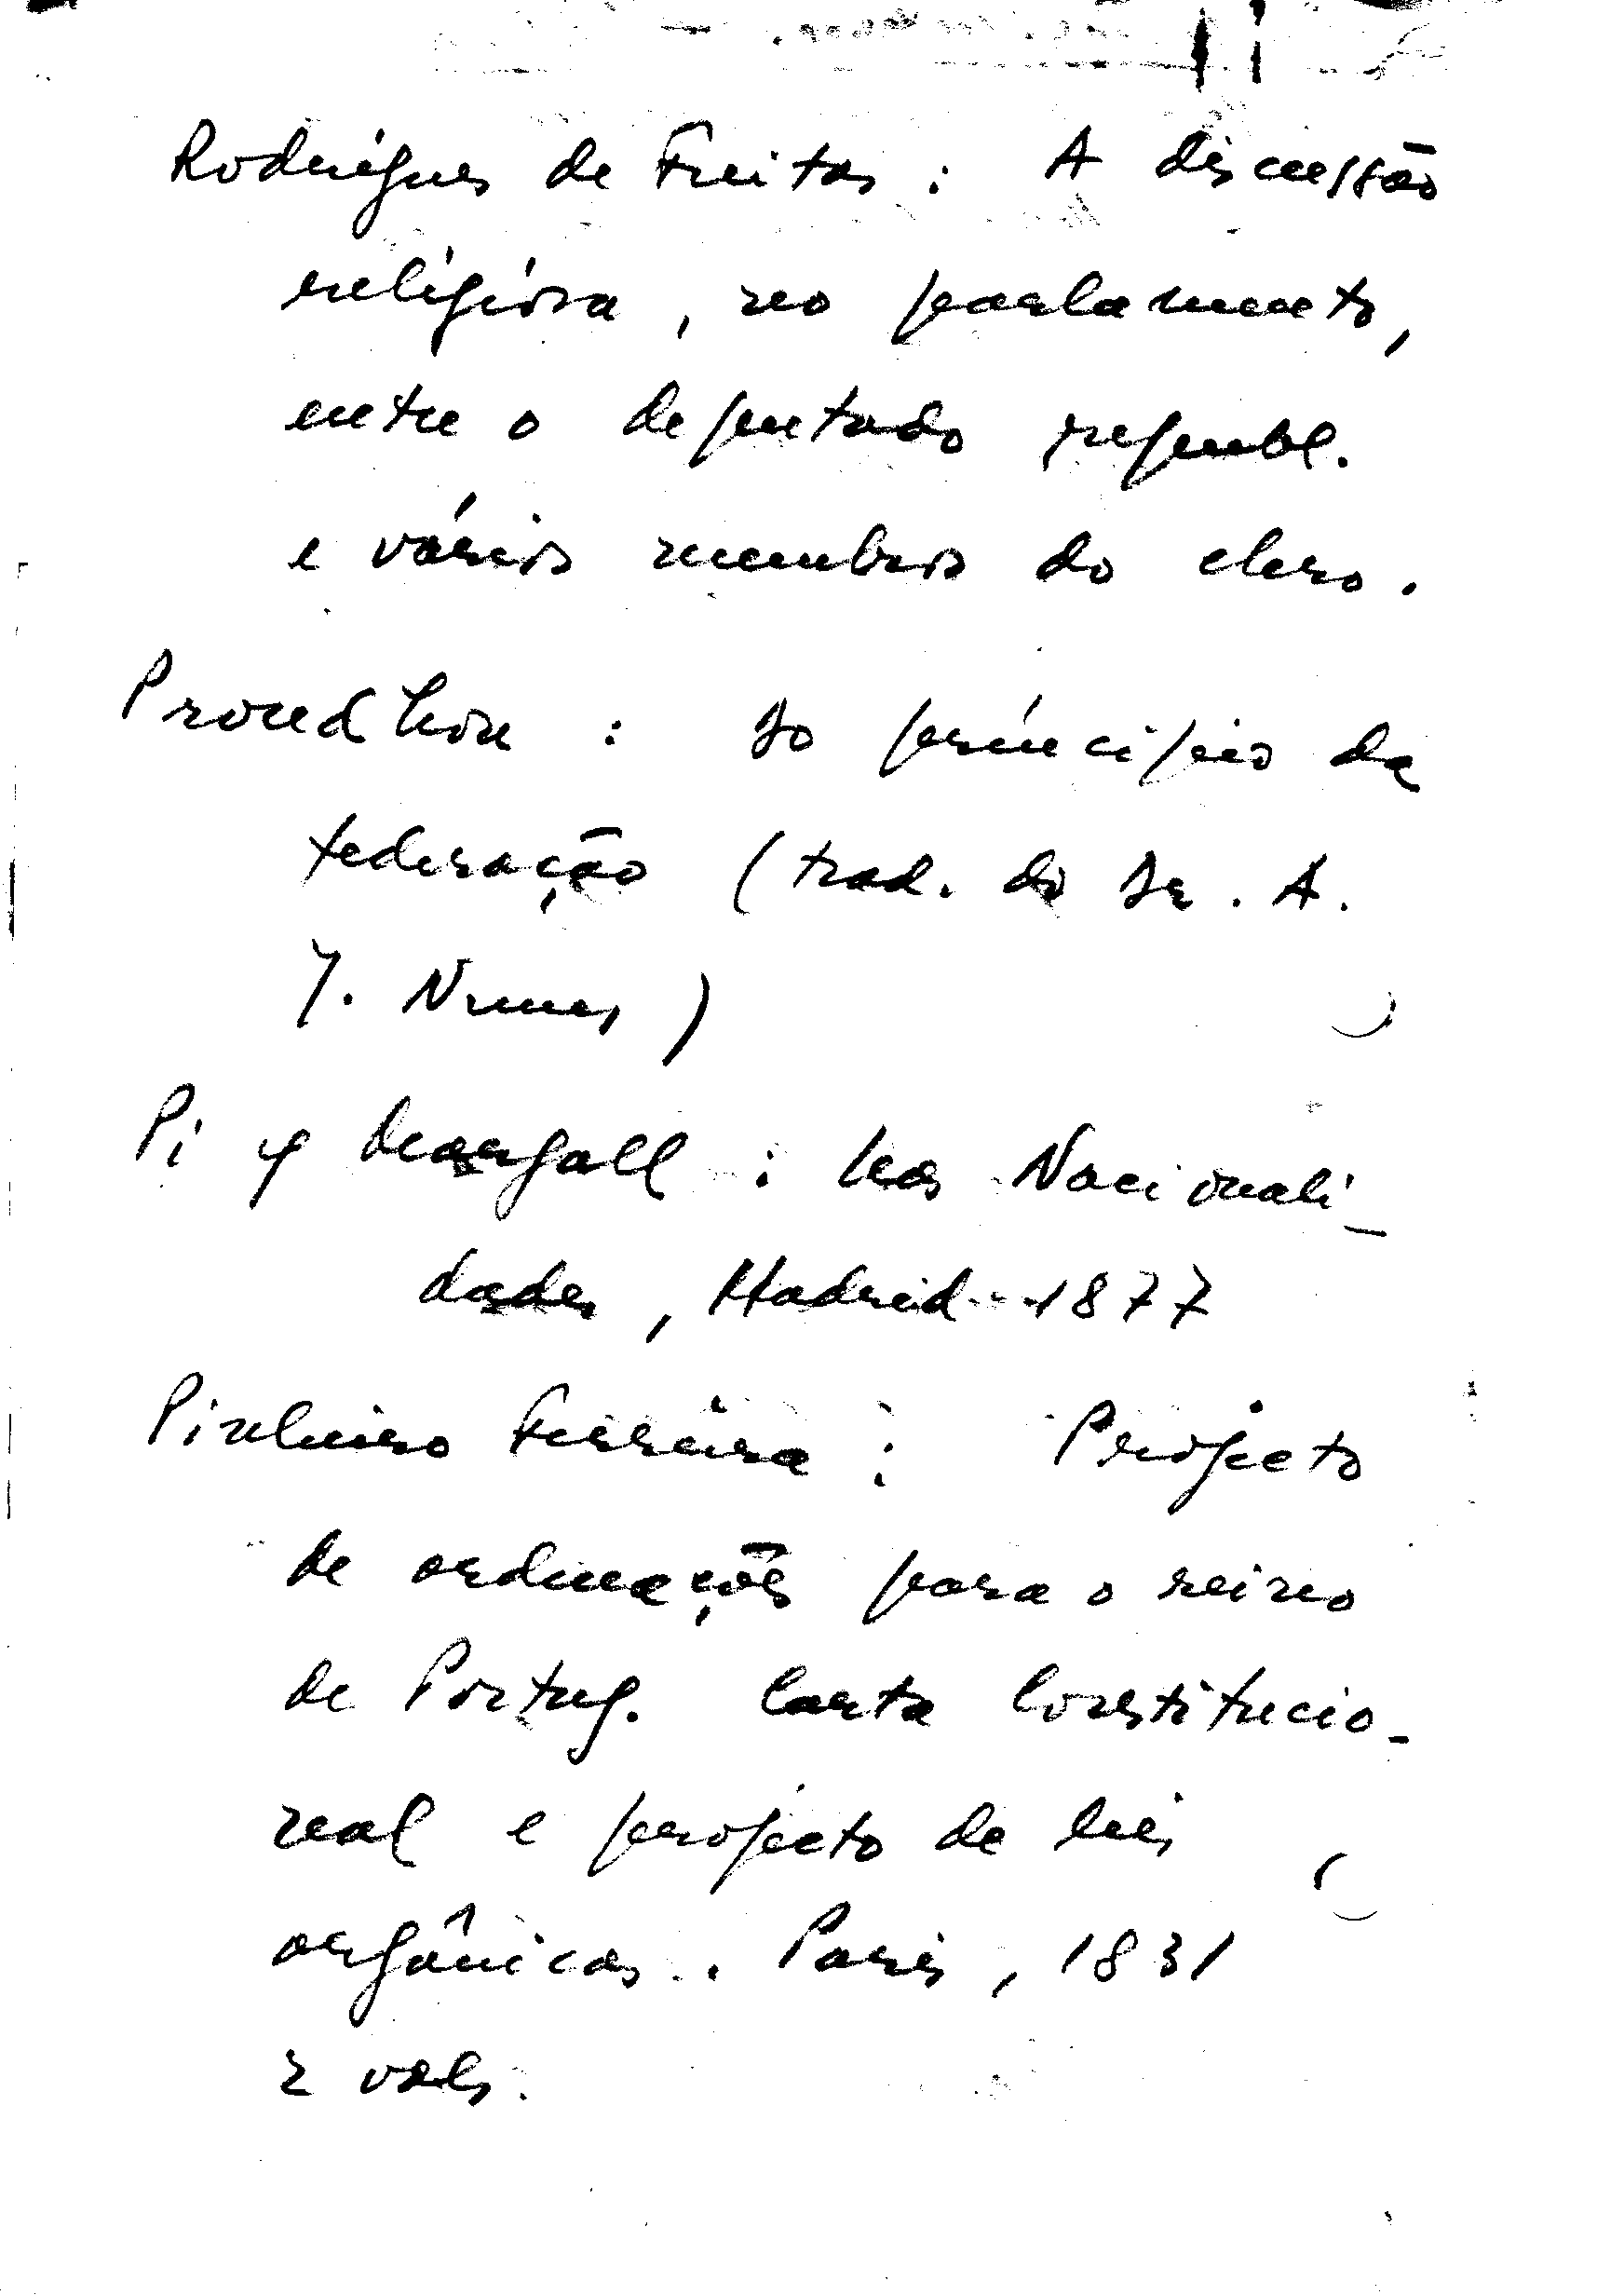 Rodrigues de Freitas : A discussão
religiosa, no parlamento,
entre o deputado republ.
e vários membros do clero.
Proudhon : Do princípio da
federação (trad. do Dr. A.
J. Nunes)
Pi y Margall : Las Nacionali-
dades, Madrid 1877
Pinheiro Ferreira : Projecto
de ordenações para o reino
de Portug. Carta Constitucio-
nal e projecto de leis
orgânicas. Paris, 1831
2 vols.